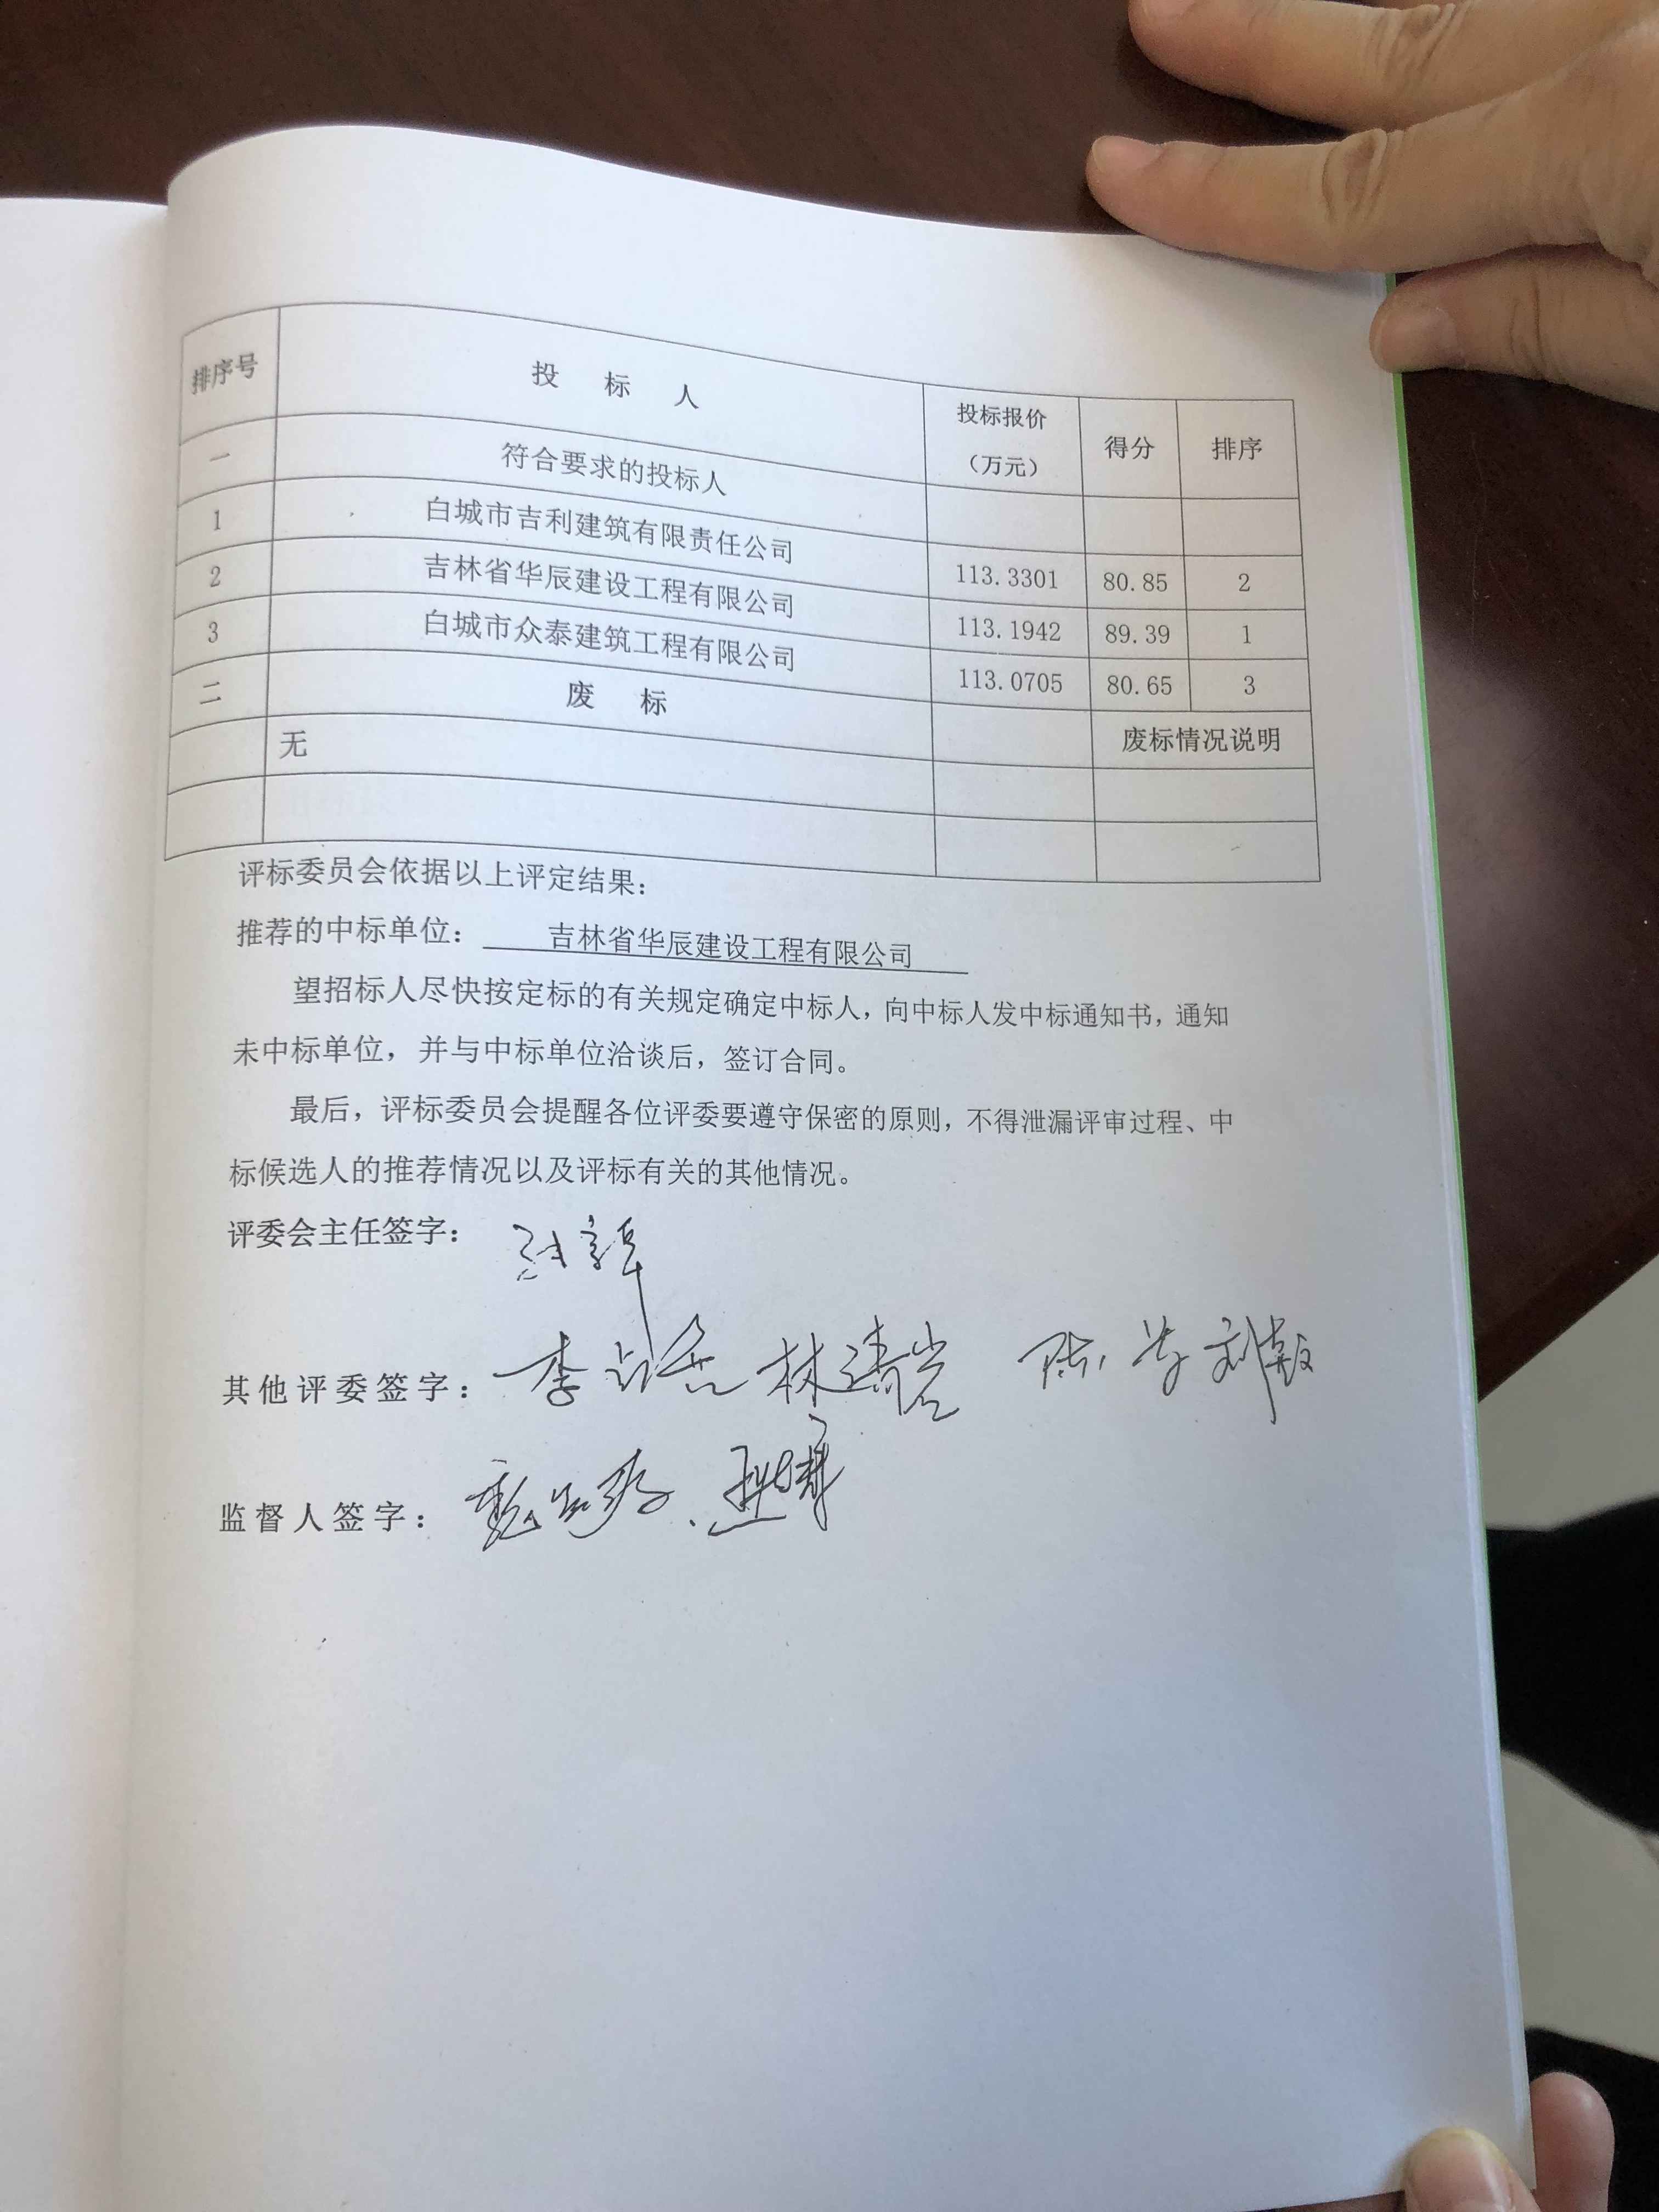 排序号 投 标 人 投标报价（万元） 得分 排序
一 符合要求的投标人
1 白城市吉利建筑有限责任公司 113.3301 80.85 2
2 吉林省华辰建设工程有限公司 113.1942 89.39 1
3 白城市众泰建筑工程有限公司 113.0705 80.65 3
二 废 标 废标情况说明
无
评标委员会依据以上评定结果：
推荐的中标单位： 吉林省华辰建设工程有限公司
望招标人尽快按定标的有关规定确定中标人，向中标人发中标通知书，通知
未中标单位，并与中标单位洽谈后，签订合同。
最后，评标委员会提醒各位评委要遵守保密的原则，不得泄漏评审过程、中
标候选人的推荐情况以及评标有关的其他情况。
评委会主任签字：
其他评委签字：
监督人签字：